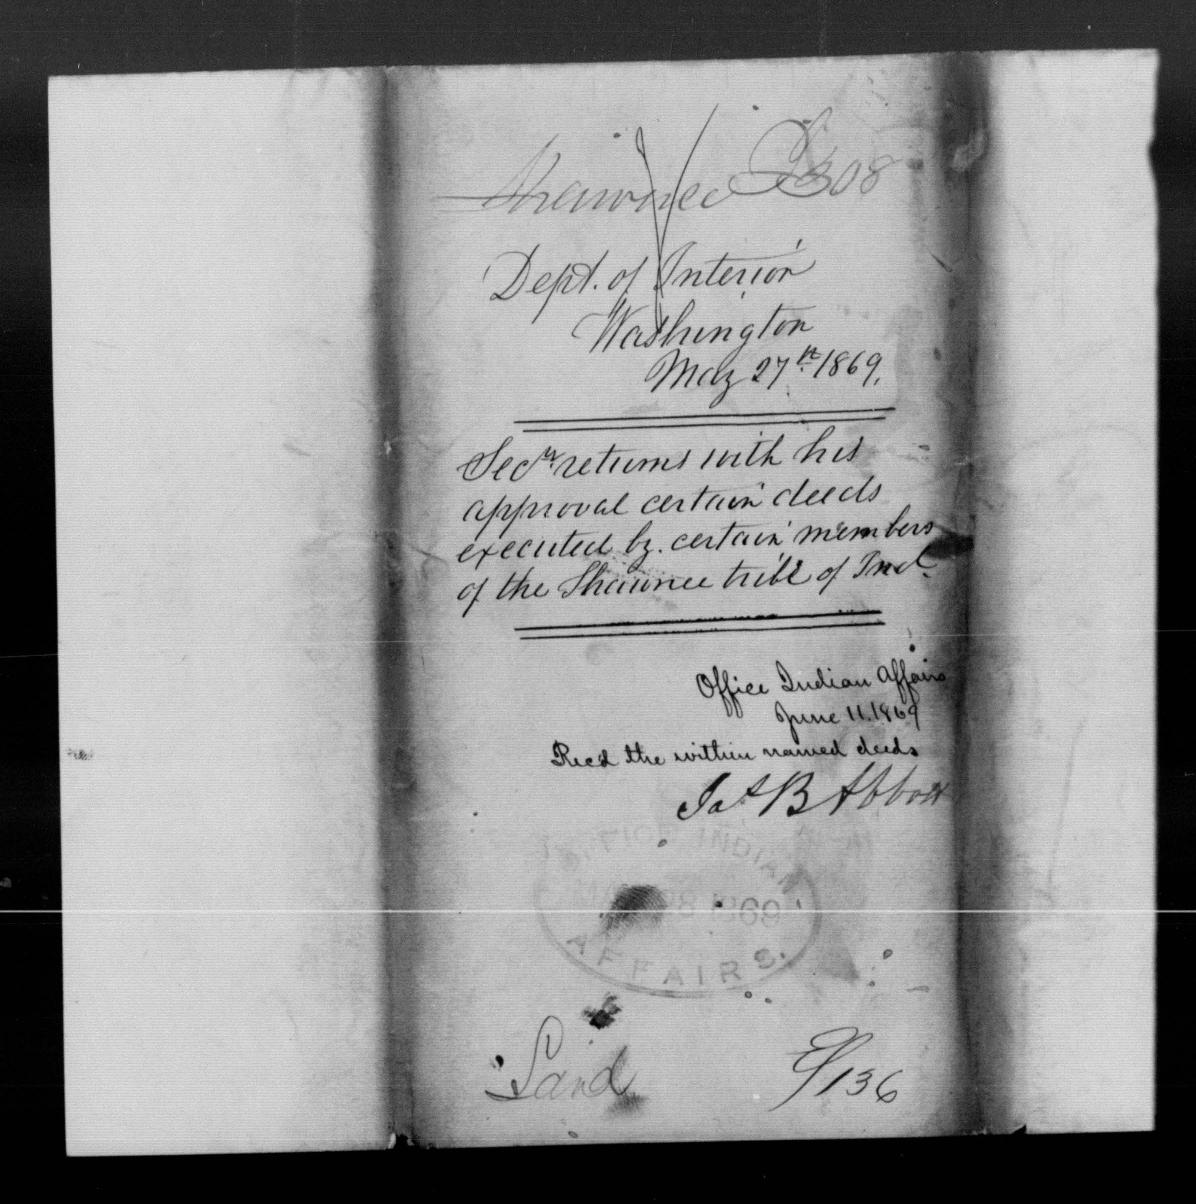 Shawnee I 808
Dept. of Interior
Washington
May 27th 1869.
Secy. returns with his
approval certain deeds
executed by certain members
of the Shawnee tribe of Ind.
Office Indian Affairs
June 11. 1869
Recd the within named deeds
Jas B Abbott
OFFICE INDIAN
28 1869
AFFAIRS.
Land
136